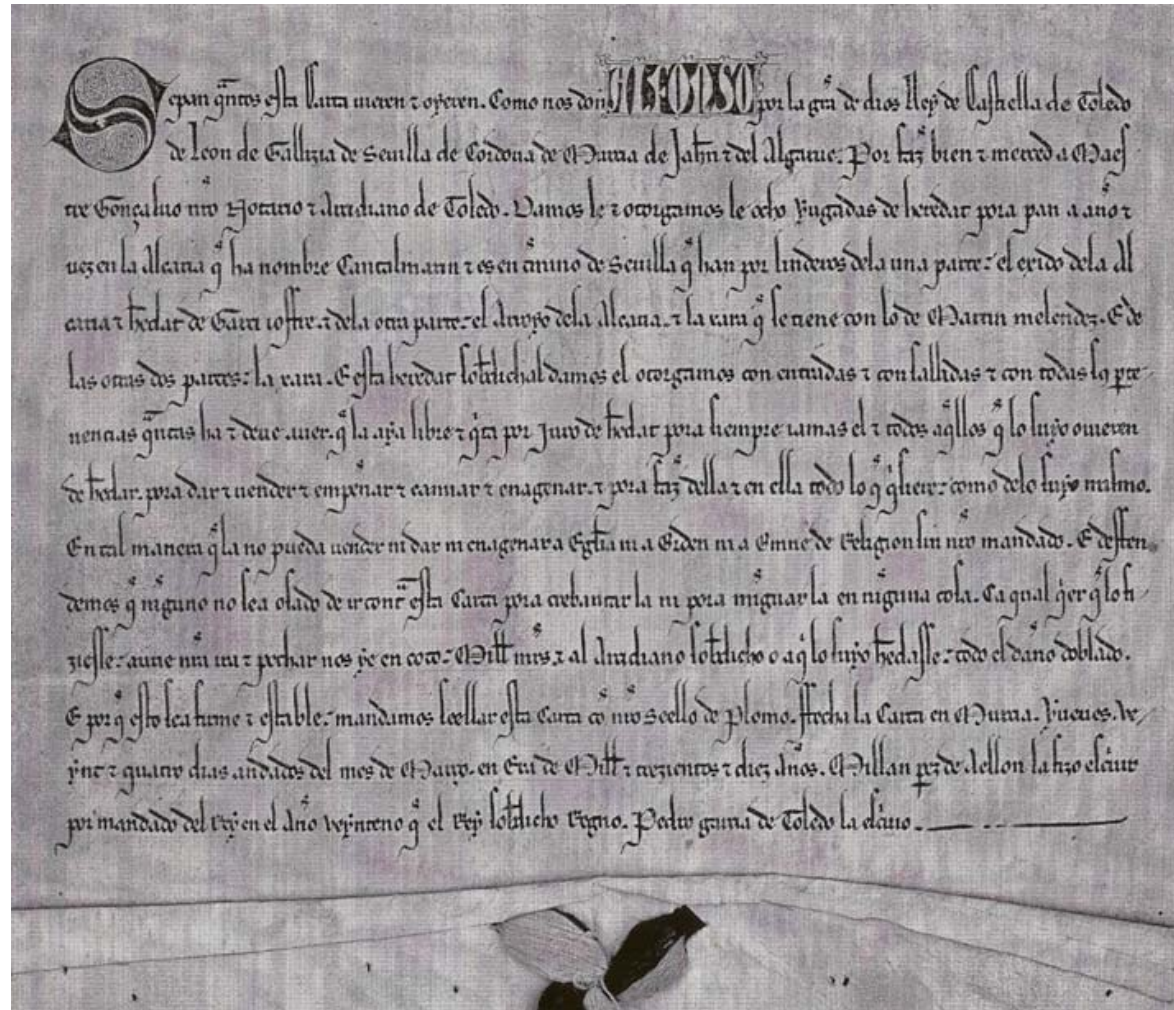 Sepan q̃ntos esta Carta uieren ⁊ oyeren. Como nos don ALFONSO por la gr̃a de dios Rey de Castiella de Toledo
de Leon de Gallizia de Seuilla de Cordoua de Murcia de Jahẽn ⁊ del Algarue. Por faz̃ bien ⁊ merced a Maes
tre Gonçaluo nr̃o Notario ⁊ Arcidiano de Toledo. Damos le ⁊ otorgamos le ocho yugadas de heredat pora pan a año ⁊
uez en la Alcaria q̃ ha nombre ⁊ es en t̃mino de Seuilla q̃ han por linderos dela una parte: el exido dela Al
caria ⁊ h̃edat de Garci ioffre. ⁊ dela otra parte: el Arroyo dela Alcaria. ⁊ la xara q̃ se tiene con lo de Martin melendez. E de
las otras dos partes: la xara. E esta heredat sob̃dicha l damos el otorgamos con entradas ⁊ con sallidas ⁊ con todas sus p̃te
nencias q̃ntas ha ⁊ deue auer. q̃ la aya libre ⁊ q̃ta por Juro de h̃edat pora siempre iamas el ⁊ todos aq̃llos q̃ lo suyo ouieren
de h̃edar. pora dar ⁊ uender ⁊ empeñar ⁊ camiar ⁊ enagenar. ⁊ pora faz̃ della ⁊ en ella todo lo q̃ q̃siere: como delo suyo mismo.
En tal manera q̃ la no pueda uender ni dar ni enagenar a Egl̃ia ni a Orden ni a Omne de Religion sin nr̃o mandado. E deffen
demos q̃ niguno no sea osado de ir cont̃ esta Carta pora crebantar la ni pora miguar la en niguna cosa. Ca qual q̃er q̃ lo fi
ziesse: aurie nr̃a ira ⁊ pechar nos ye en coto: Mill mr̃s. ⁊ al Arcidiano sob̃dicho o a q̃ lo suyo h̃edasse: todo el daño doblado.
E por q̃ esto sea firme ⁊ estable: mandamos seellar esta Carta cõ nr̃o Seello de Plomo. ffecha la Carta en Murcia. Yueues. Ve
ynt ⁊ quatro dias andados del mes de Março. en Era de Mill ⁊ trezientos ⁊ diez Años. Millan p̃ez de Aellon la fizo esc̃uir
por mandado del Rey en el Año veynteno q̃ el Rey sob̃dicho Regno. Pedro garcia de Toledo la esc̃uio.